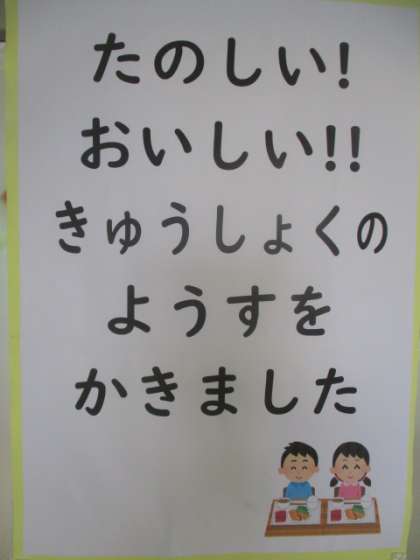 たのしい!
おいしい!!
きゅうしょくの
ようすを
かきました